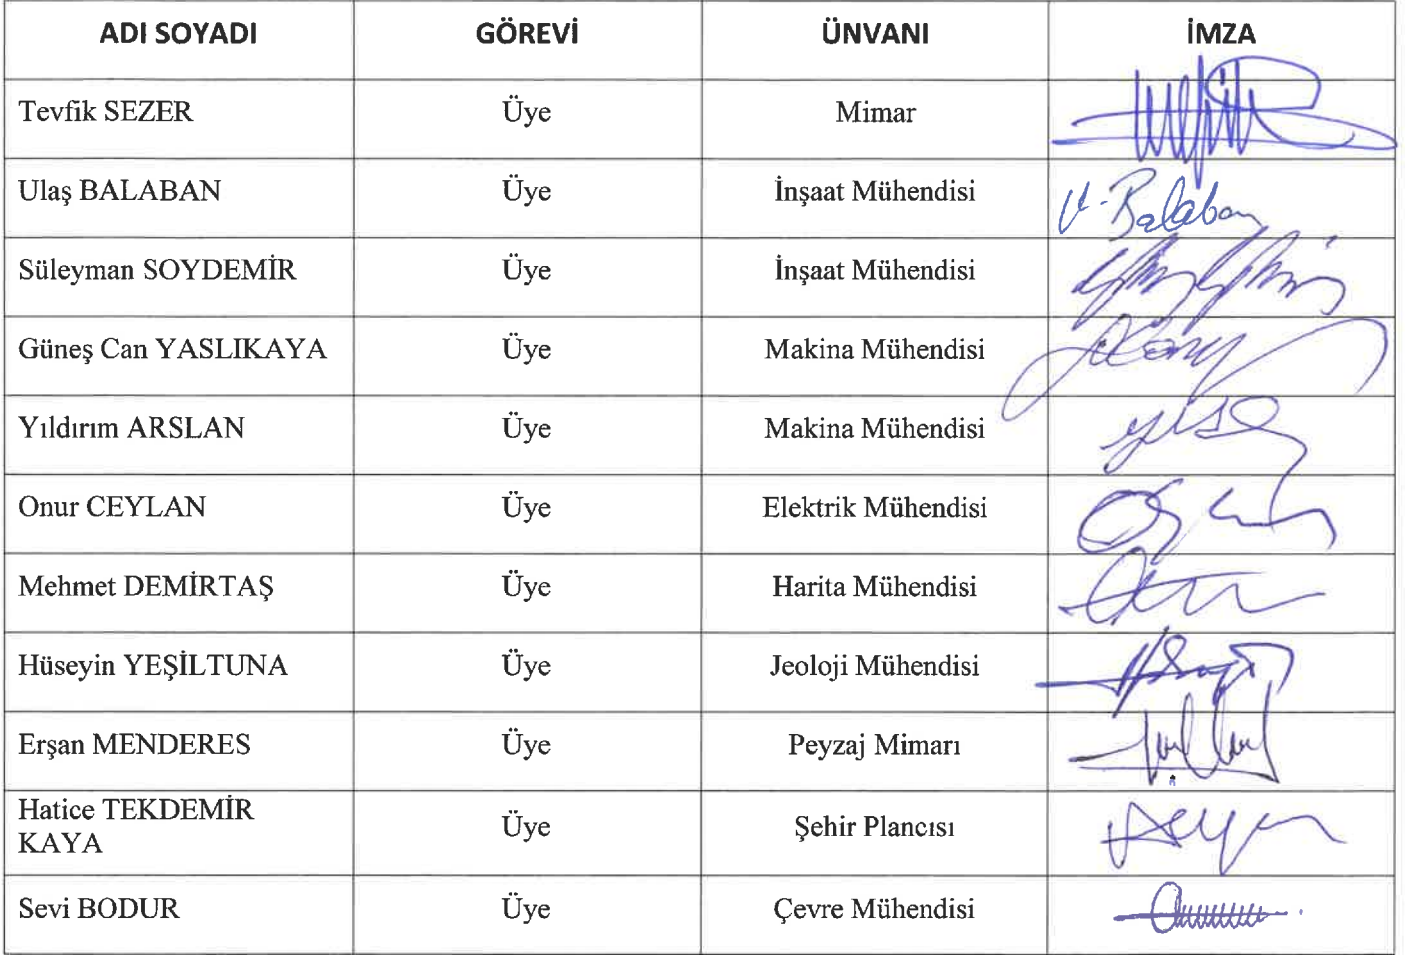 ADI SOYADI GÖREVİ ÜNVANI İMZA
Tevfik SEZER Üye Mimar
Ulaş BALABAN Üye İnşaat Mühendisi U. Balaban
Süleyman SOYDEMİR Üye İnşaat Mühendisi
Güneş Can YASLIKAYA Üye Makina Mühendisi
Yıldırım ARSLAN Üye Makina Mühendisi
Onur CEYLAN Üye Elektrik Mühendisi
Mehmet DEMİRTAŞ Üye Harita Mühendisi
Hüseyin YEŞİLTUNA Üye Jeoloji Mühendisi
Erşan MENDERES Üye Peyzaj Mimarı
Hatice TEKDEMİR
KAYA Üye Şehir Plancısı
Sevi BODUR Üye Çevre Mühendisi